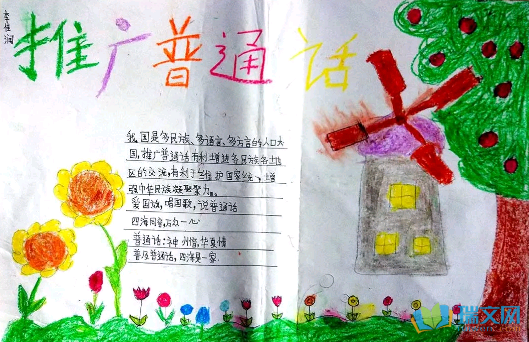 推广普通话
我国是多民族、多语言、多方言的人口大
国,推广普通话有利增进各民族各地
区的交流,有利于维护国家统一,增
强中华民族凝聚力。
爱国旗,唱国歌,说普通话
四海同音,万众一心
普通话:神州音,华夏情
普及普通话,四海是一家
瑞文网